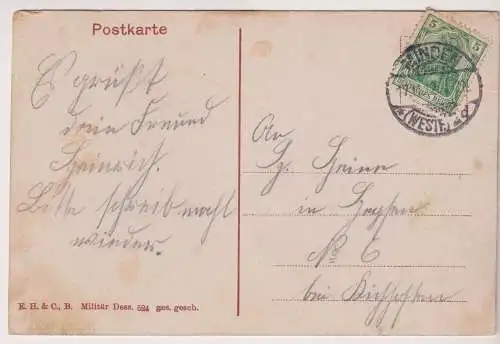 Postkarte
Es grüßt
dein Freund
Heinrich.
Bitte schreib mahl
wieder.
An
Heine
in
No 6
bei
5
MINDEN
(WESTF.) d
E. H. & C., B. Militär Dess. 594 ges. gesch.